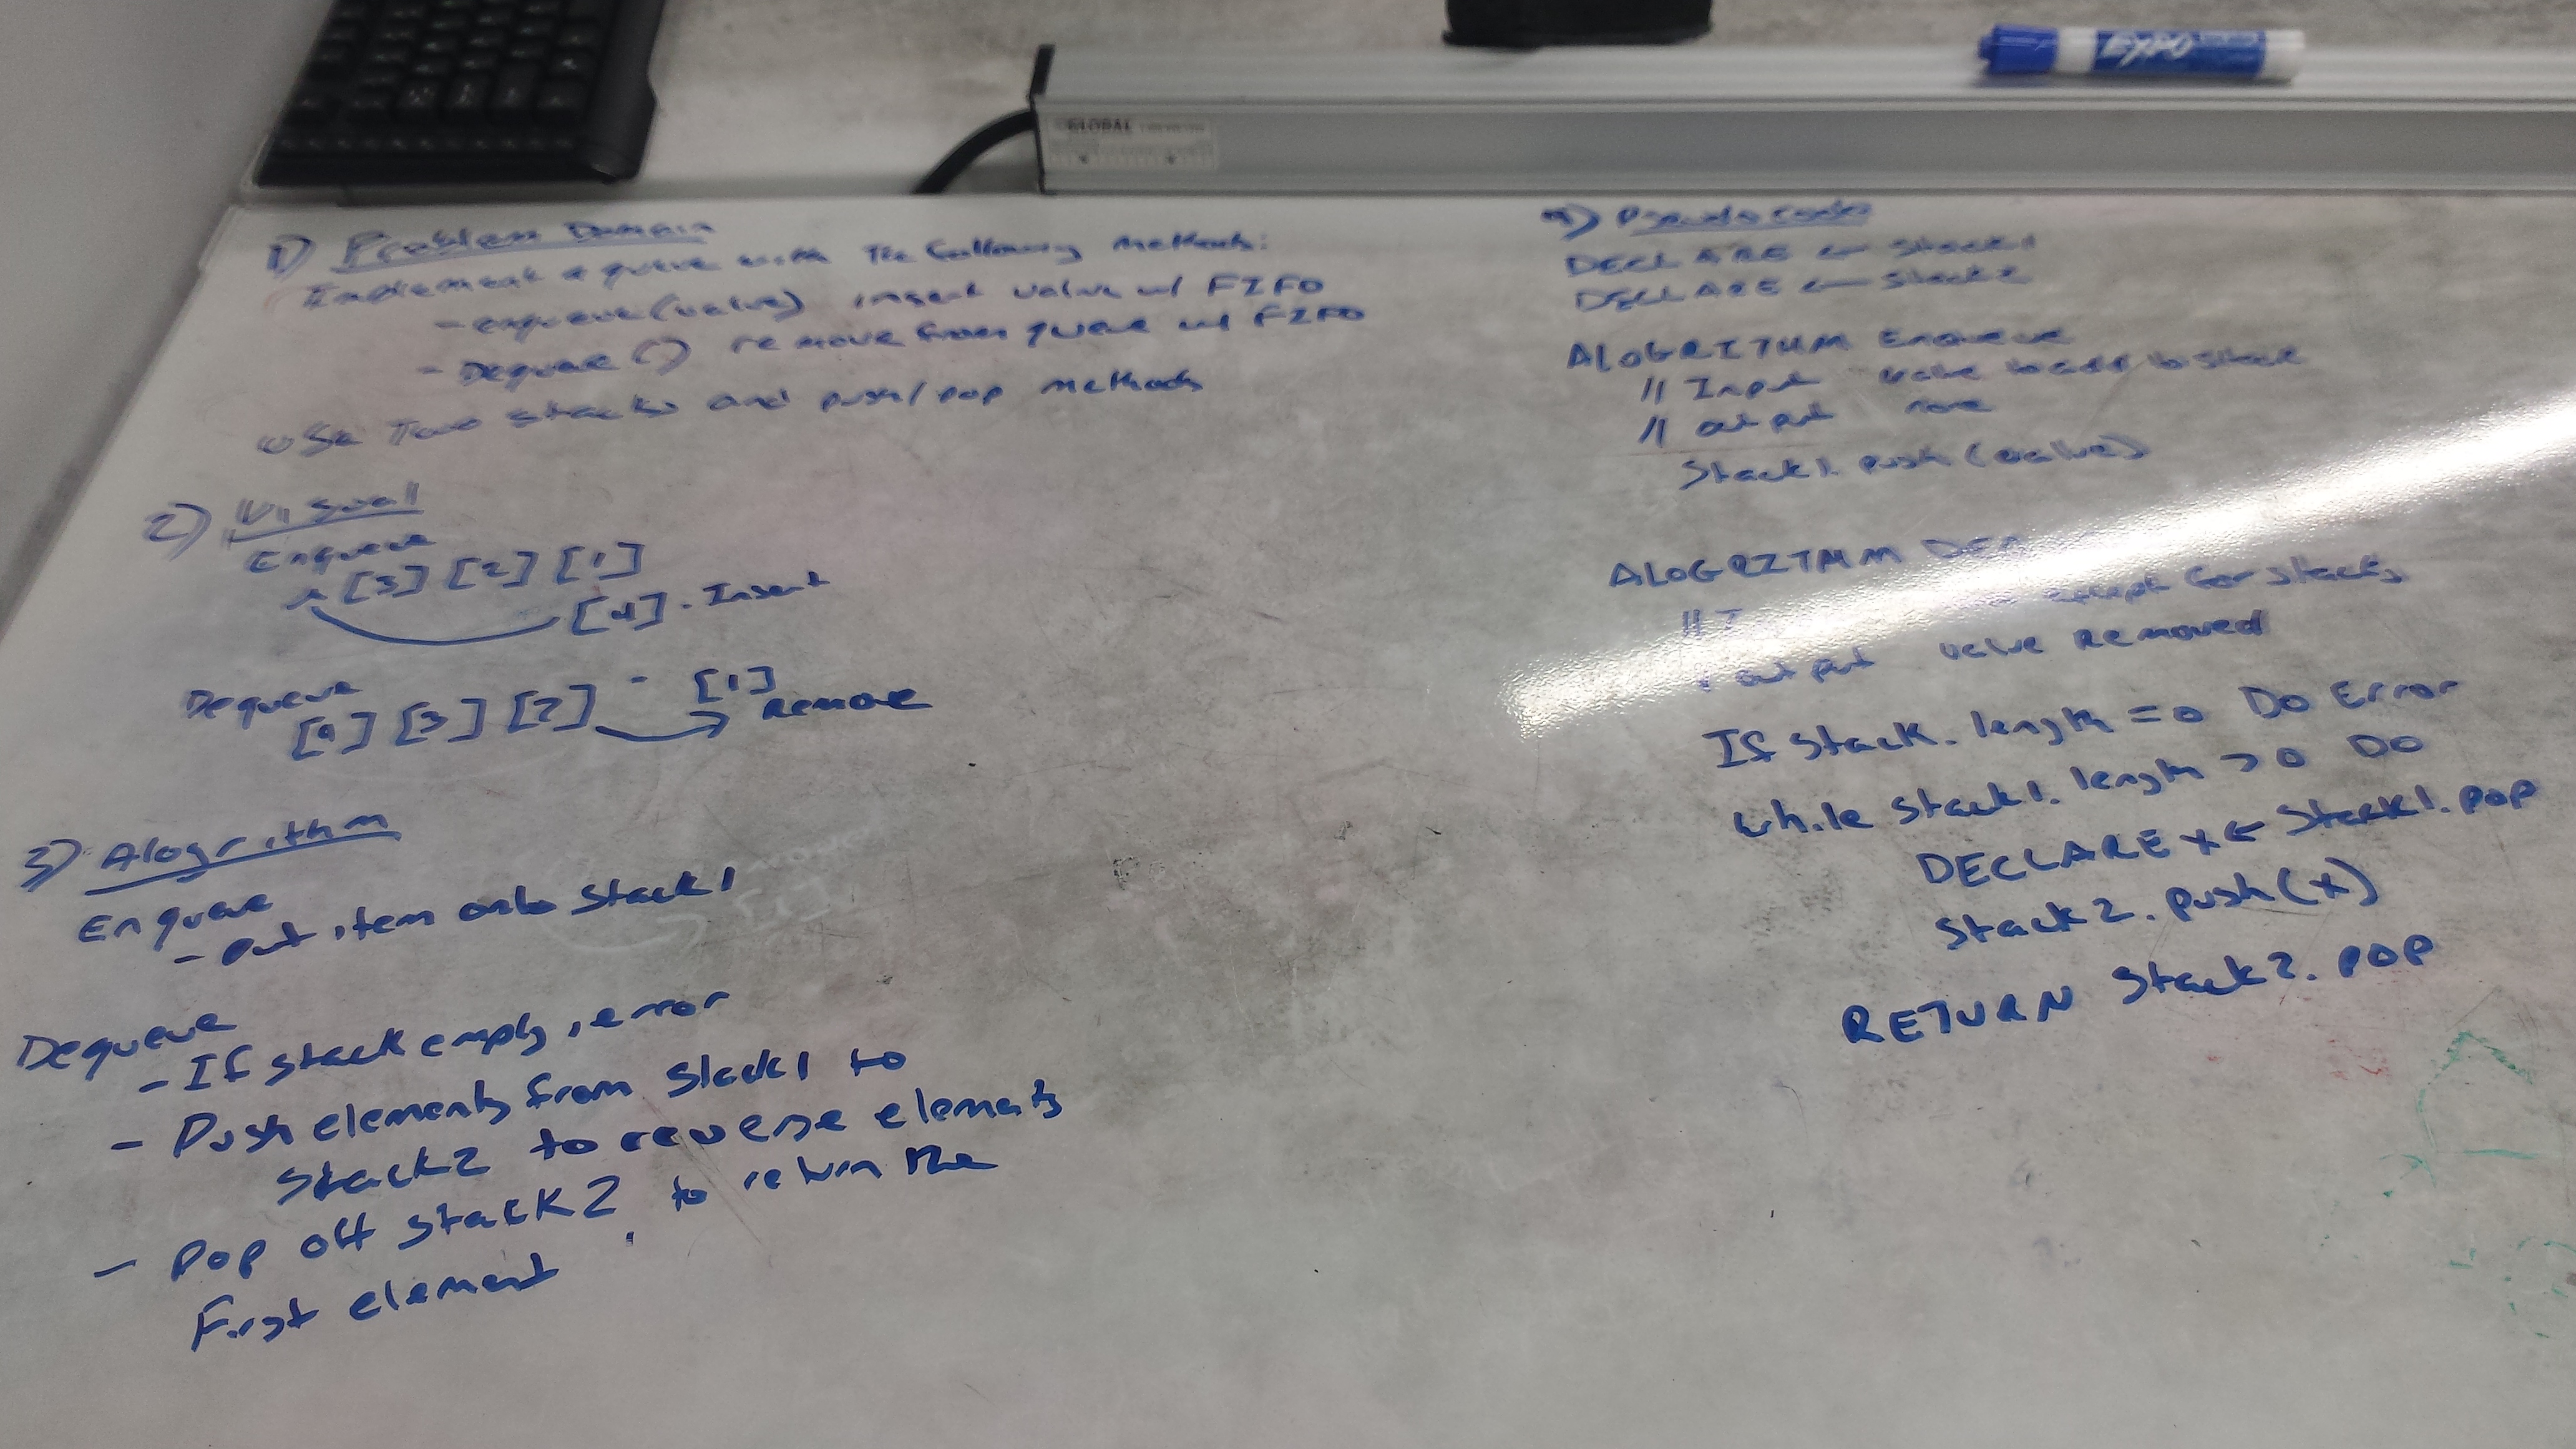 EXPO
GLOBAL
1) Problem Domain
Implement a queue with the following methods:
- enqueue(value) insert value w/ FIFO
- Dequeue () remove from queue w/ FIFO
Use Two stacks and push/pop methods
2) Visual
Enqueue
[3] [2] [1]
[4] - Insert
Dequeue
[4] [3] [2] - [1]
Remove
3) Alogrithm
Enqueue
- Put item onto Stack1
Dequeue
- If stack empty, error
- Push elements from Stack1 to
Stack2 to reverse elements
- Pop off Stack2 to return the
First element
4) Pseudo code
DECLARE ← Stack1
DECLARE ← Stack2
ALOGRITHM Enqueue
// Input value to add to stack
// output none
Stack1.push(value)
ALOGRITHM
// except for stacks
output value Removed
If stack.length = 0 Do Error
while Stack1.length > 0 DO
DECLARE x ← Stack1.pop
Stack2.push(x)
RETURN Stack2.pop